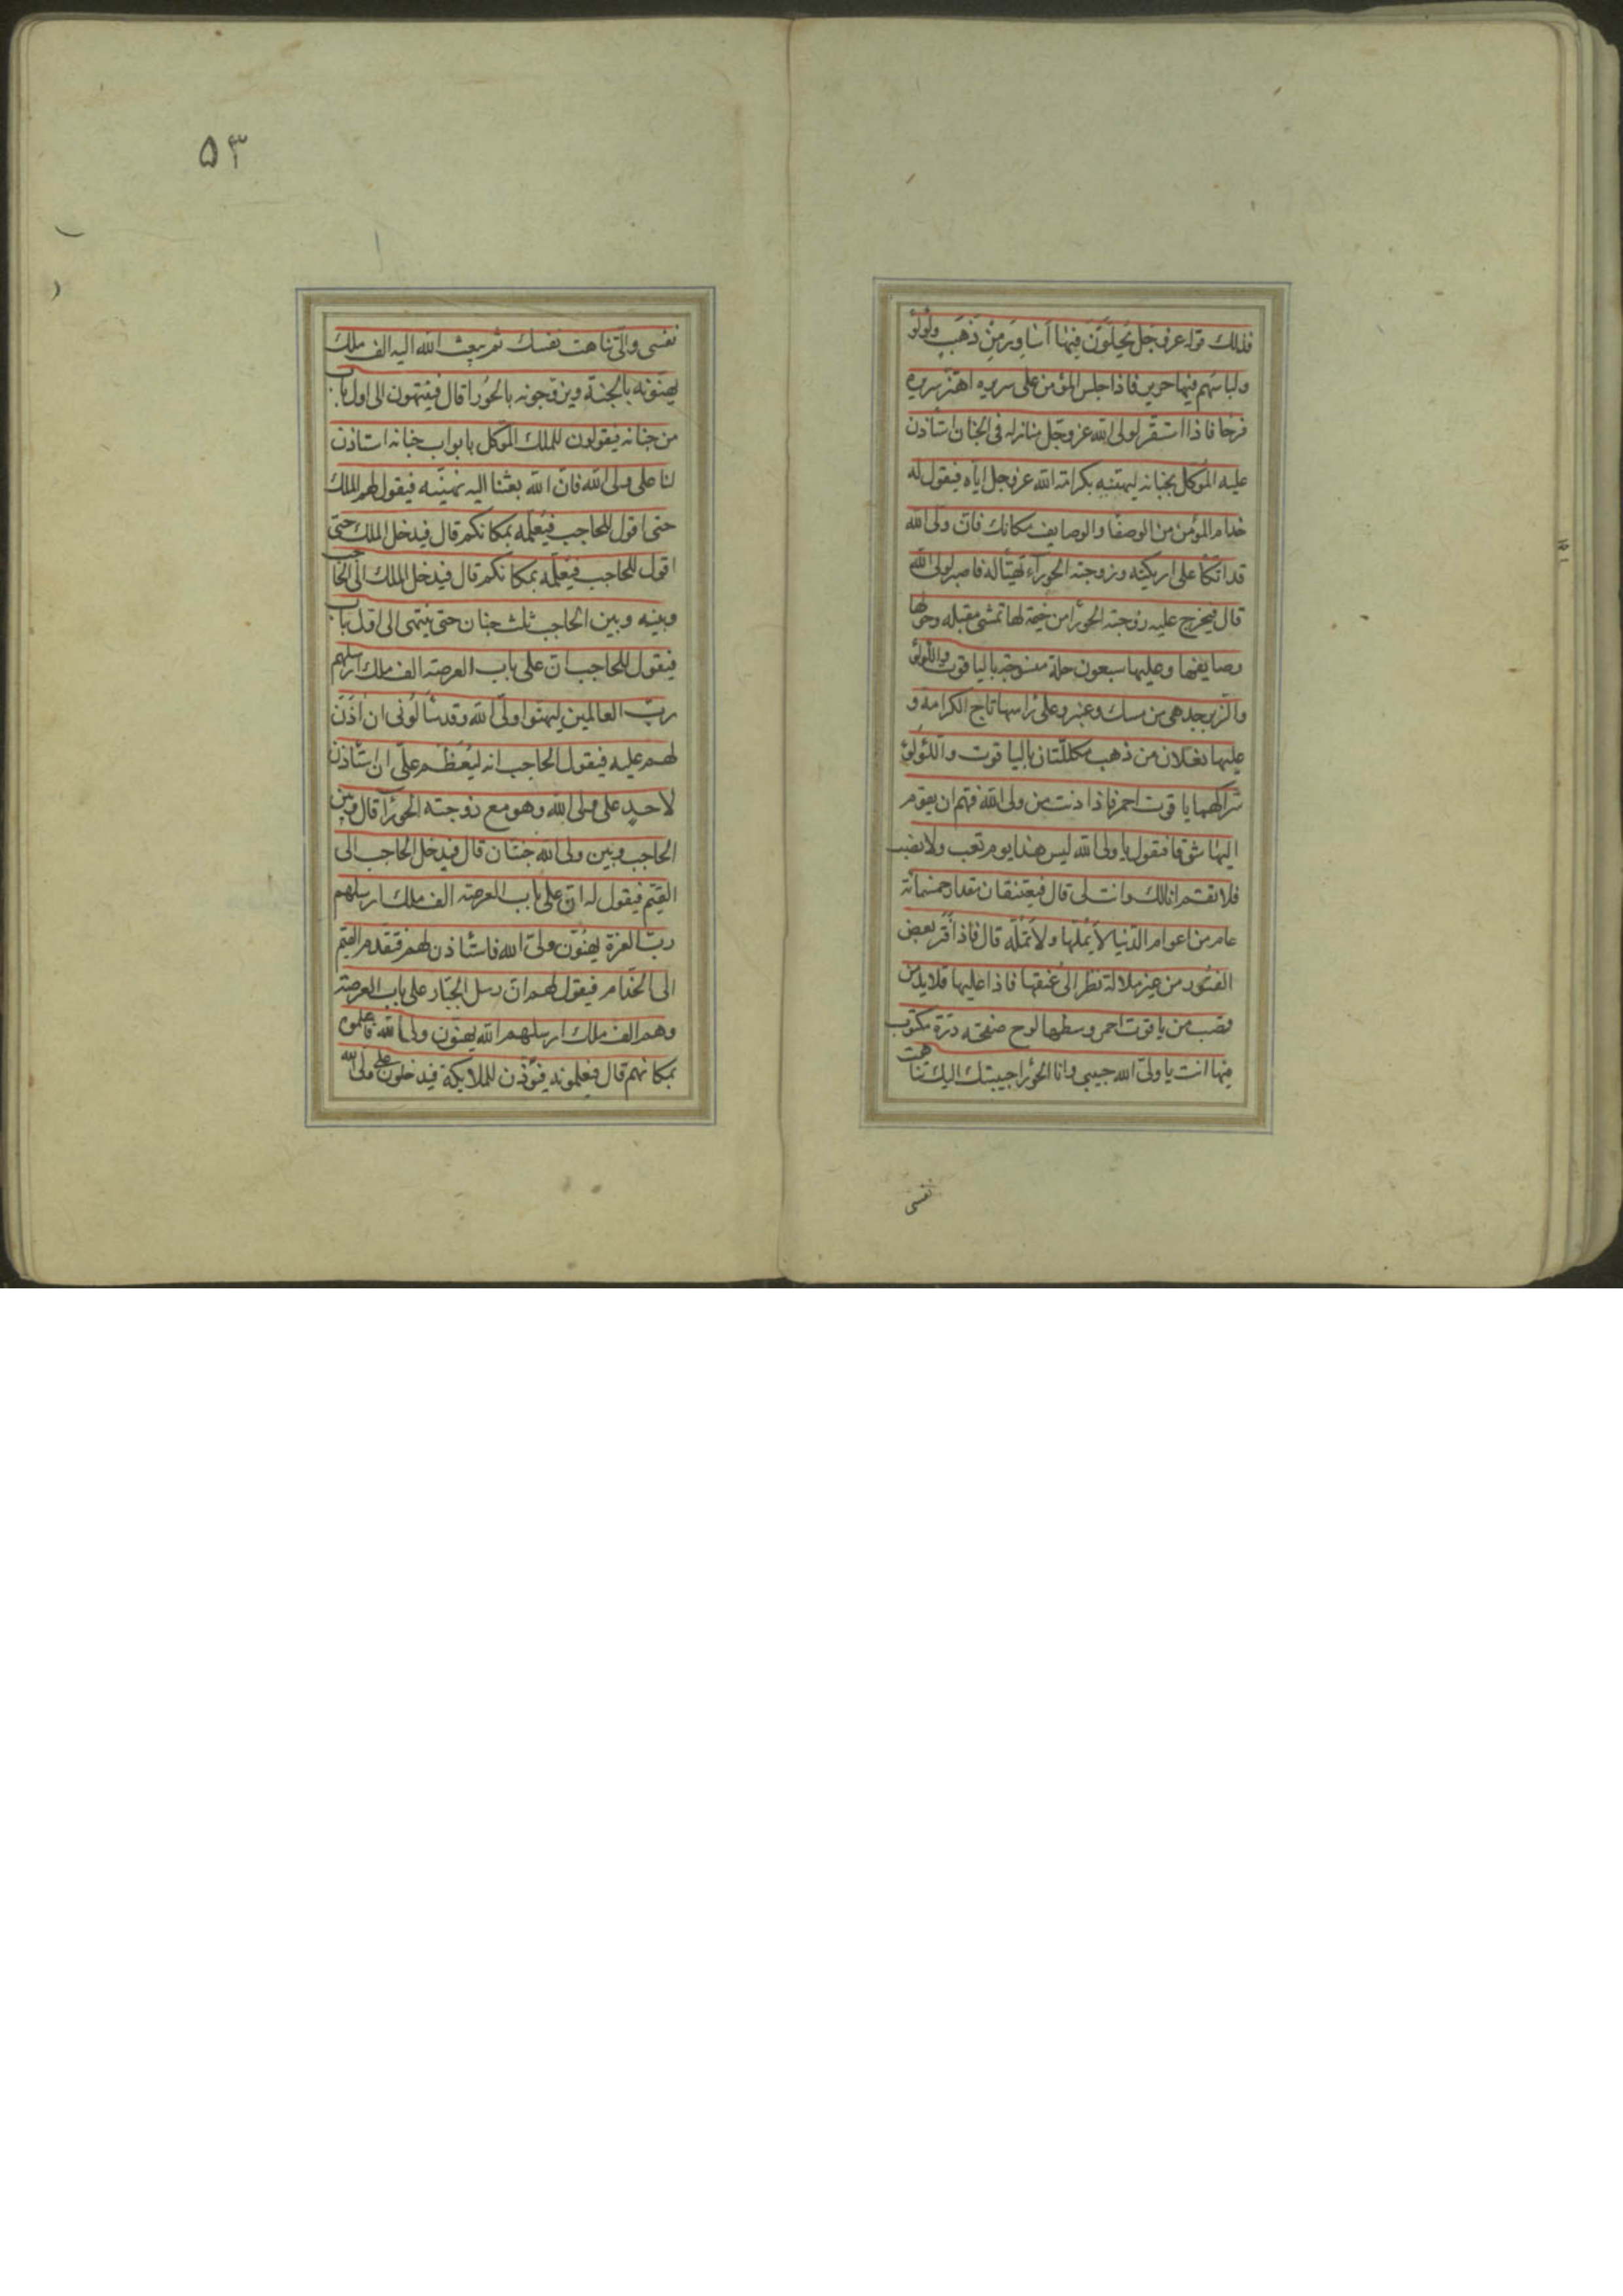 فذلك قوله عز وجل يُحَلَّوْنَ فِيهَا أَسَاوِرَ مِنْ ذَهَبٍ ولؤلؤ
ولباسهم فيها حرير فاذا جلس المؤمن على سريره اهتز سريره
فرحا فاذا استقر لولى الله عز وجل منازله فى الجنان استأذن
عليه الموكل بجنانه ليهنئه بكرامة الله عز وجل اياه فيقول له
خدام المؤمن من الوصفا والوصايف مكانك فان ولى الله
قد اتكأ على اريكته وزوجته الحورآء تهيّأ له فاصبر لولى الله
قال فيخرج عليه زوجته الحورآ من خيمة لها تمشى مقبله وحولها
وصايفها وعليها سبعون حلة منسوجة بالياقوت واللؤلؤ
والزبرجد هى من مسك وعنبر وعلى راسها تاج الكرامة و
عليها نعلان من ذهب مكللتان بالياقوت واللؤلؤ
شراكهما ياقوت احمر فاذا دنت من ولى الله فهم ان يقوم
اليها شوقا فتقول يا ولى الله ليس هذا يوم تعب ولا نصب
فلا تقم انا لك وانت لى قال فيعتنقان مقدار خمسمائة
عام من اعوام الدنيا لا يُملّها ولا تملّه قال فاذا فتر بعض
الفتور من غير ملالة نظر الى عنقها فاذا عليها قلايد من
قصب من ياقوت احمر وسطها لوح صفحته درّة مكتوب
فيها انت يا ولىّ الله حبيبى وانا الحورا حبيبتك اليك تناهت
نفسى
٥٣
نفسى والىّ تناهت نفسك ثم يبعث الله اليه الف ملك
يهنّونه بالجنة ويزوجونه بالحورا قال فينتهون الى اول باب
من جنانه فيقولون للملك الموكل بابواب جنانه استاذن
لنا على ولى الله فان الله بعثنا اليه نهنّيه فيقول لهم الملك
حتى اقول للحاجب فيُعلمه بمكانكم قال فيدخل الملك حتى
اقول للحاجب فيعلمه بمكانكم قال فيدخل الملك الى الحاجب
وبينه وبين الحاجب ثلث جنان حتى ينتهى الى اول باب
فيقول للحاجب ان على باب العرصة الف ملك ارسلهم
ربّ العالمين ليهنوا ولىّ الله وقد سألونى ان اُذَنَ
لهم عليه فيقول الحاجب انه ليُعَظَم علىّ ان استأذن
لاحدٍ على ولى الله وهو مع زوجته الحورآ قال وبين
الحاجب وبين ولى الله جنتان قال فيدخل الحاجب الى
القيّم فيقول له ان على باب العرصة الف ملك ارسلهم
ربّ العزة يهنؤن ولىّ الله فاستأذن لهم فيقدم القيّم
الى الخدّام فيقول لهم ان رسل الجبّار على باب العرصة
وهم الف ملك ارسلهم الله يهنؤن ولى الله فاعلموه
بمكانهم قال فيعلمونه فيؤذن للملايكة فيدخلون على ولى الله